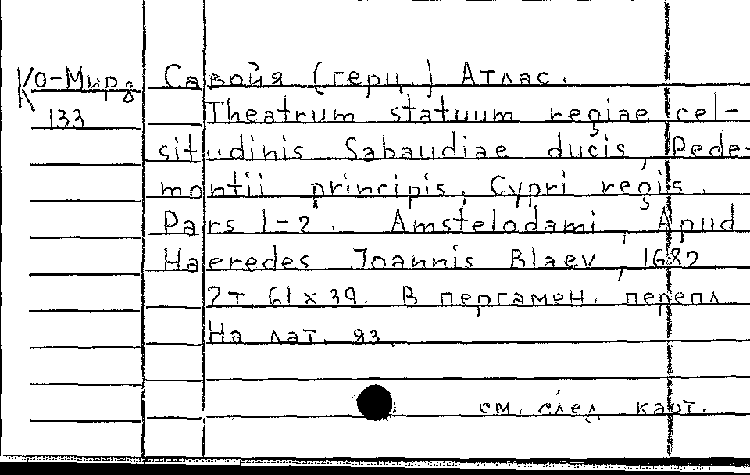 Ко-Мирв Савойя (герц.) Атлас.
133 Theatrum statuum regiae cel-
situdinis Sabaudiae ducis, Pede-
montii principis, Cypri regis.
Pars 1-2. Amstelodami, Apud
Haeredes Joannis Blaev, 1682
2т 61x39. В пергамен. перепл
На лат. яз.
см. след карт.